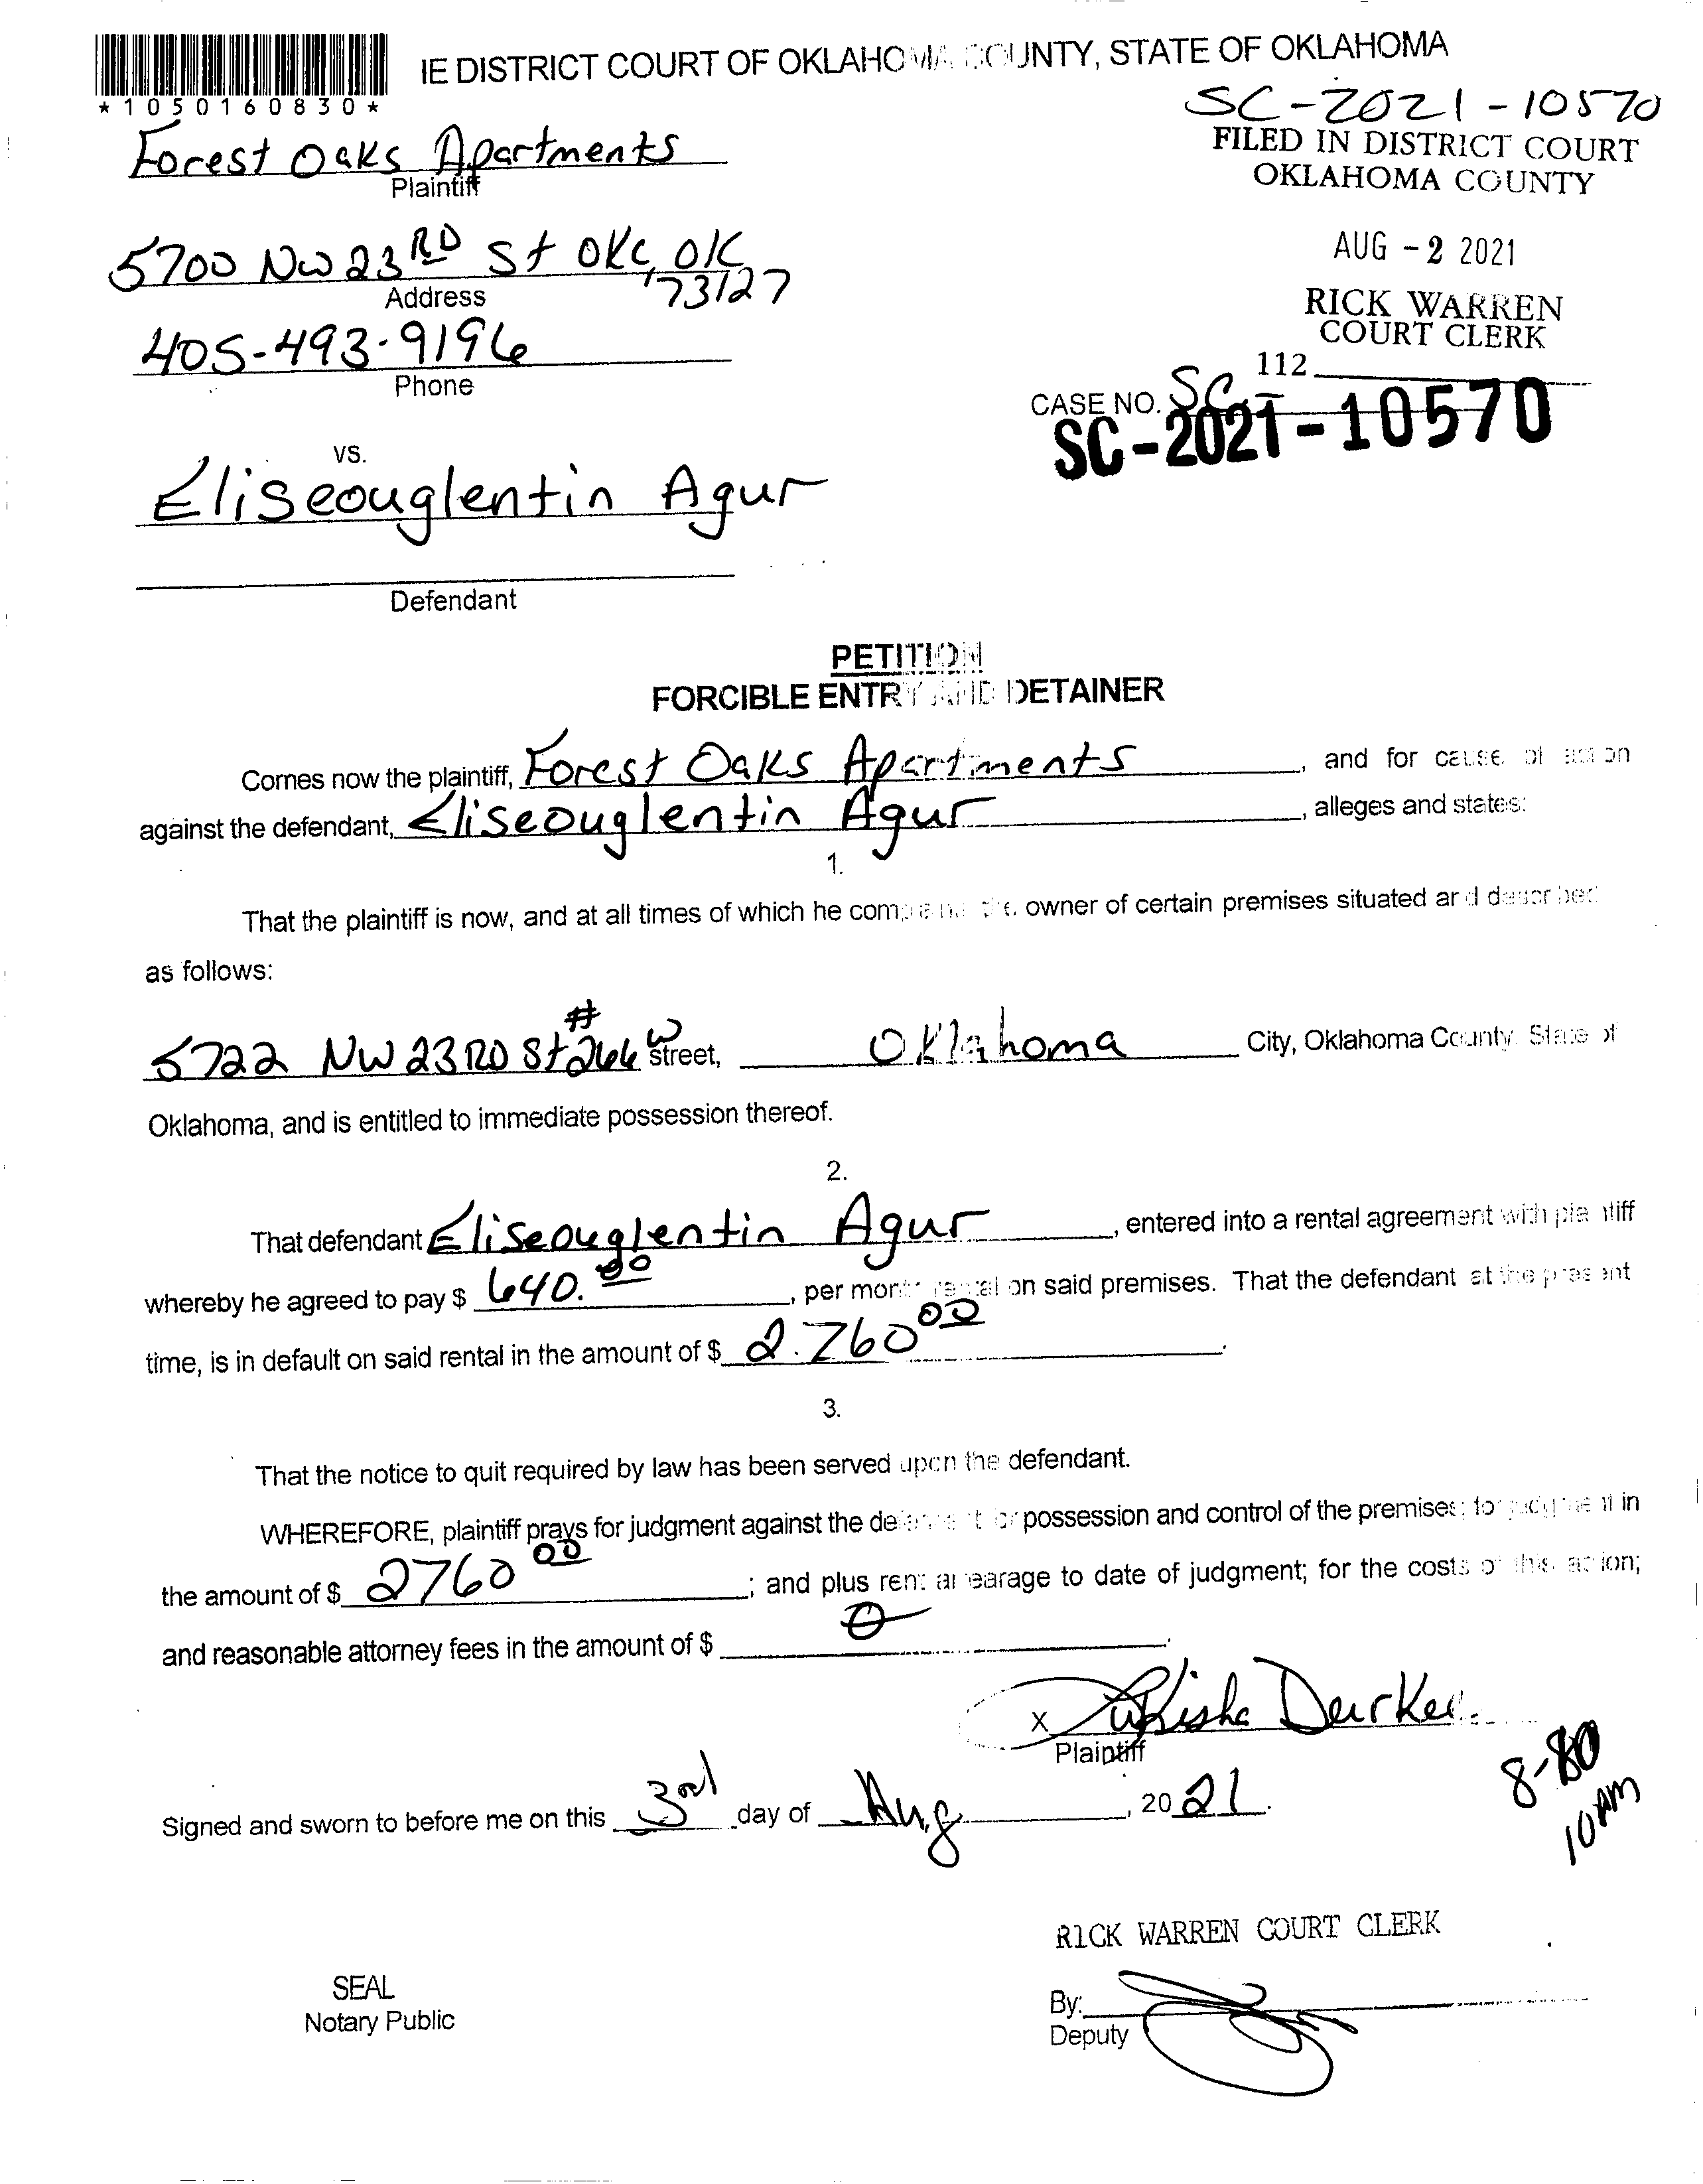 IE DISTRICT COURT OF OKLAHOMA COUNTY, STATE OF OKLAHOMA
*1050160830*
SC-2021-10570
FILED IN DISTRICT COURT
OKLAHOMA COUNTY
Forest Oaks Apartments
Plaintiff
AUG -2 2021
5700 NW 23RD St OKC, OK
73127
Address
RICK WARREN
COURT CLERK
405-493-9196
Phone
112
CASE NO. SC
SC-2021-10570
VS.
Eliseouglentin Agur
Defendant
PETITION
FORCIBLE ENTRY AND DETAINER
Comes now the plaintiff, Forest Oaks Apartments, and for cause of action
against the defendant, Eliseouglentin Agur, alleges and states:
1.
That the plaintiff is now, and at all times of which he the owner of certain premises situated and described
as follows:
5722 NW 23RD St #266 W street, Oklahoma City, Oklahoma County, State of
Oklahoma, and is entitled to immediate possession thereof.
2.
That defendant Eliseouglentin Agur, entered into a rental agreement with plaintiff
whereby he agreed to pay $ 640.00, per month rental on said premises. That the defendant at the present
time, is in default on said rental in the amount of $ 2.760 00.
3.
That the notice to quit required by law has been served upon the defendant.
WHEREFORE, plaintiff prays for judgment against the defendant for possession and control of the premises; for judgment in
the amount of $ 2760 00; and plus rent arrearage to date of judgment; for the costs of this action;
and reasonable attorney fees in the amount of $ 0.
X
Plaintiff
8-
10 AM
Signed and sworn to before me on this 3rd day of Aug, 2021.
RICK WARREN COURT CLERK
SEAL
Notary Public
By:
Deputy